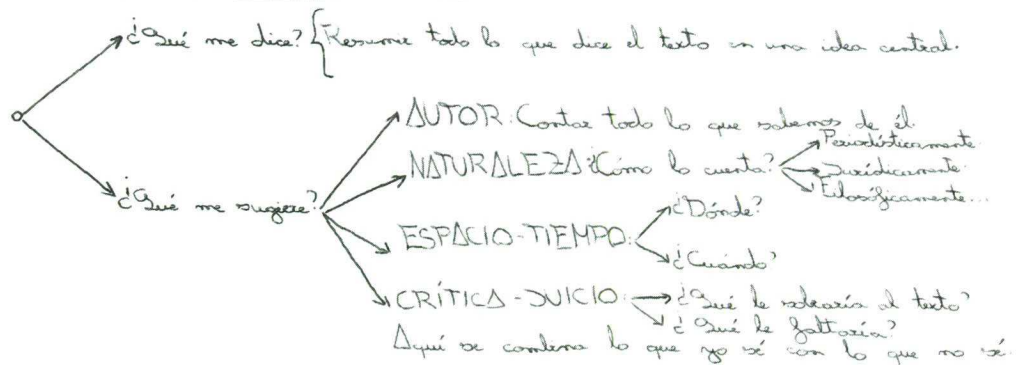 ¿Qué me dice? { Resume todo lo que dice el texto en una idea central.
AUTOR: Contar todo lo que sabemos de él.
NATURALEZA: ¿Cómo lo cuenta?
Periodísticamente.
Jurídicamente.
Filosóficamente...
¿Qué me sugiere?
ESPACIO-TIEMPO:
¿Dónde?
¿Cuándo?
CRÍTICA-JUICIO:
¿Qué le sobraría al texto?
¿Qué le faltaría?
Aquí se combina lo que yo sé con lo que no sé.